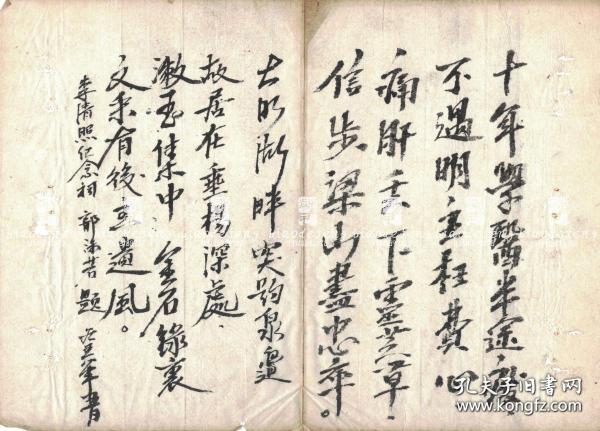 十年學醫半途廢,
不遇明主枉費心
痛肝天下靈芝草.
信步梁山盡忠卒。
大明湖畔 突趵泉邊
故居在垂楊深處.
漱玉集中 金石錄裏
文采有後主遺風。
李清照纪念祠 郭沫若 题 年書
孔夫子旧书网
www.kongfz.com